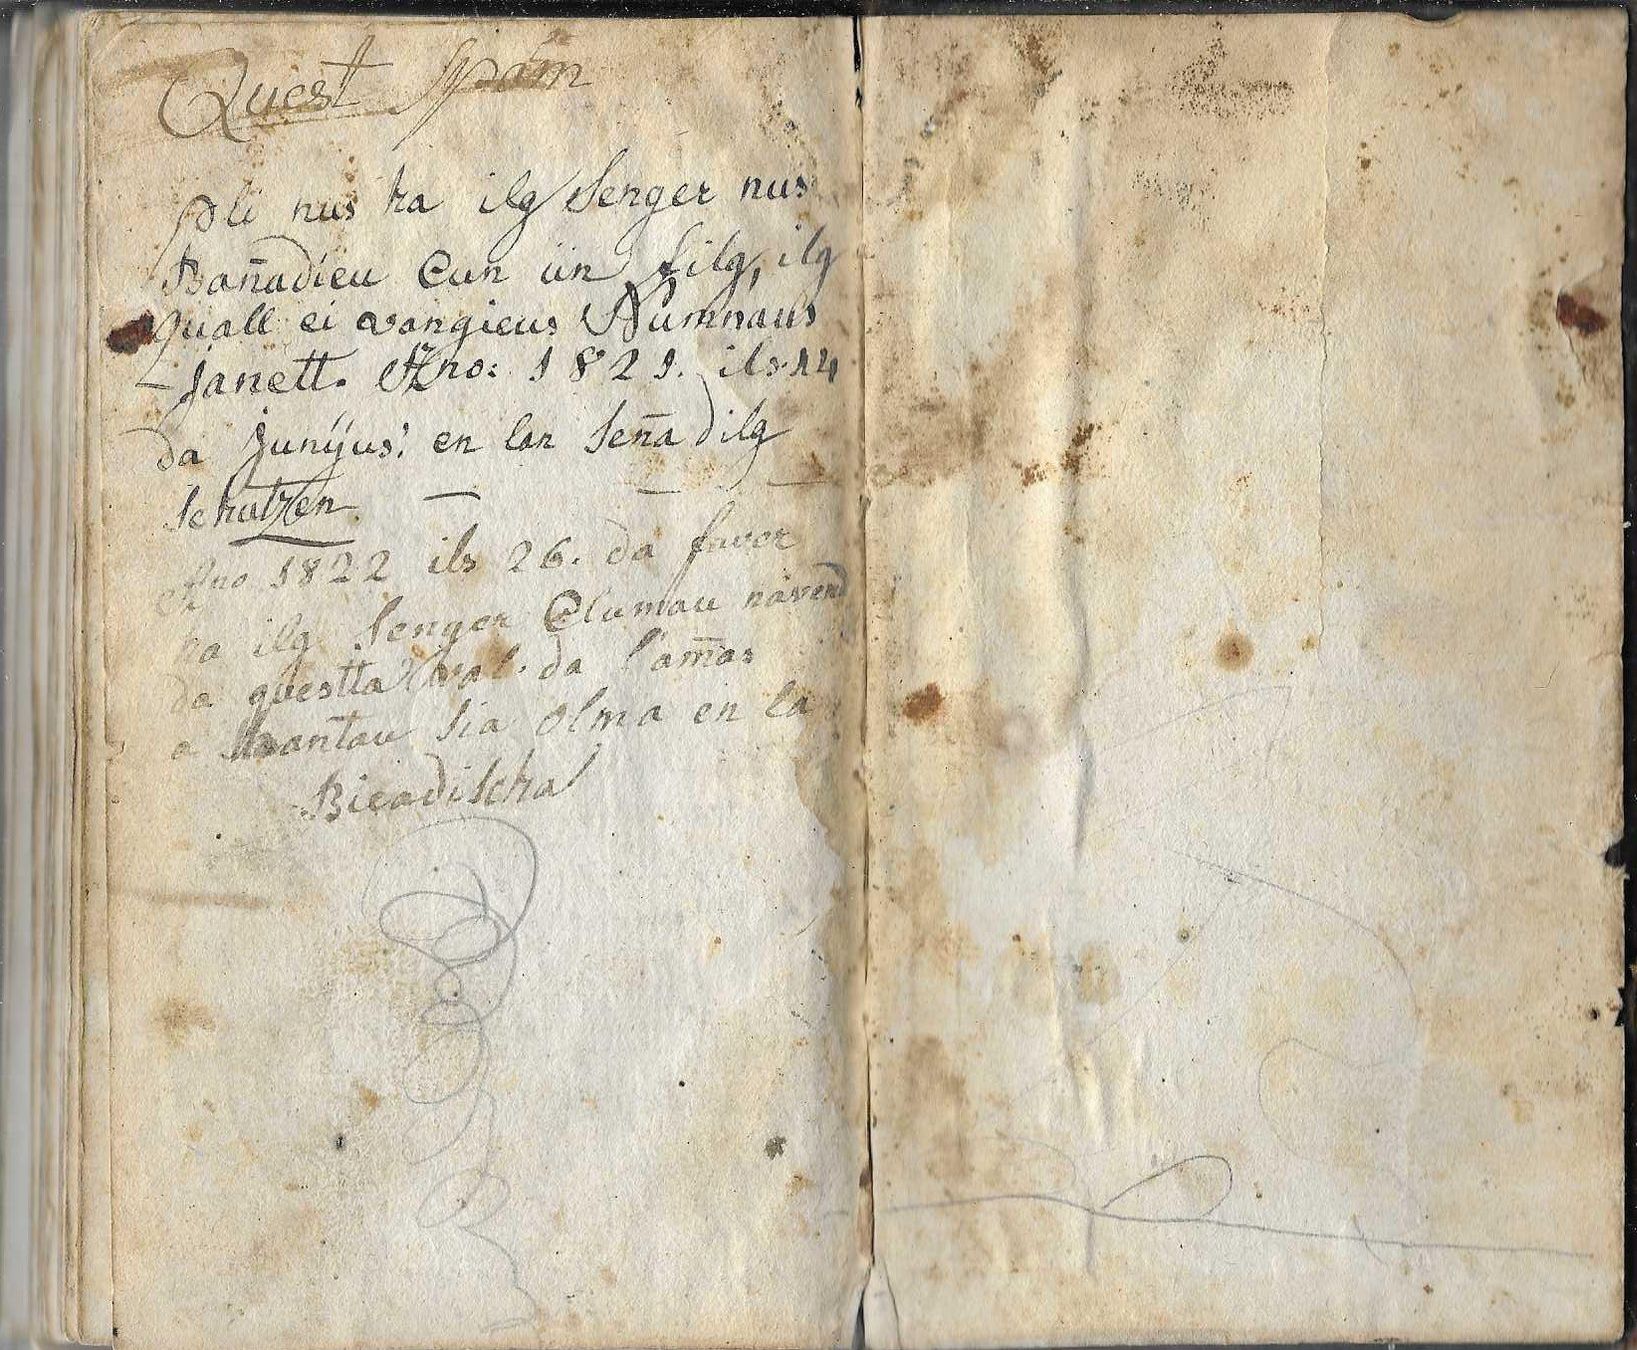 Quest
Pli nus ha ilg Senger nus
Bañadieu Cun ün filg, ilg
quall ei vangieus Numnaus
Janett. Ano: 1821. ils 14
da Junÿus: en lan Señadilg
Schutzen
Ano 1822 ils 26. da favor
ha ilg Senger Clumau navend
da questta val. da l'am̃as
a santau Sia olma en la
Bieadischa